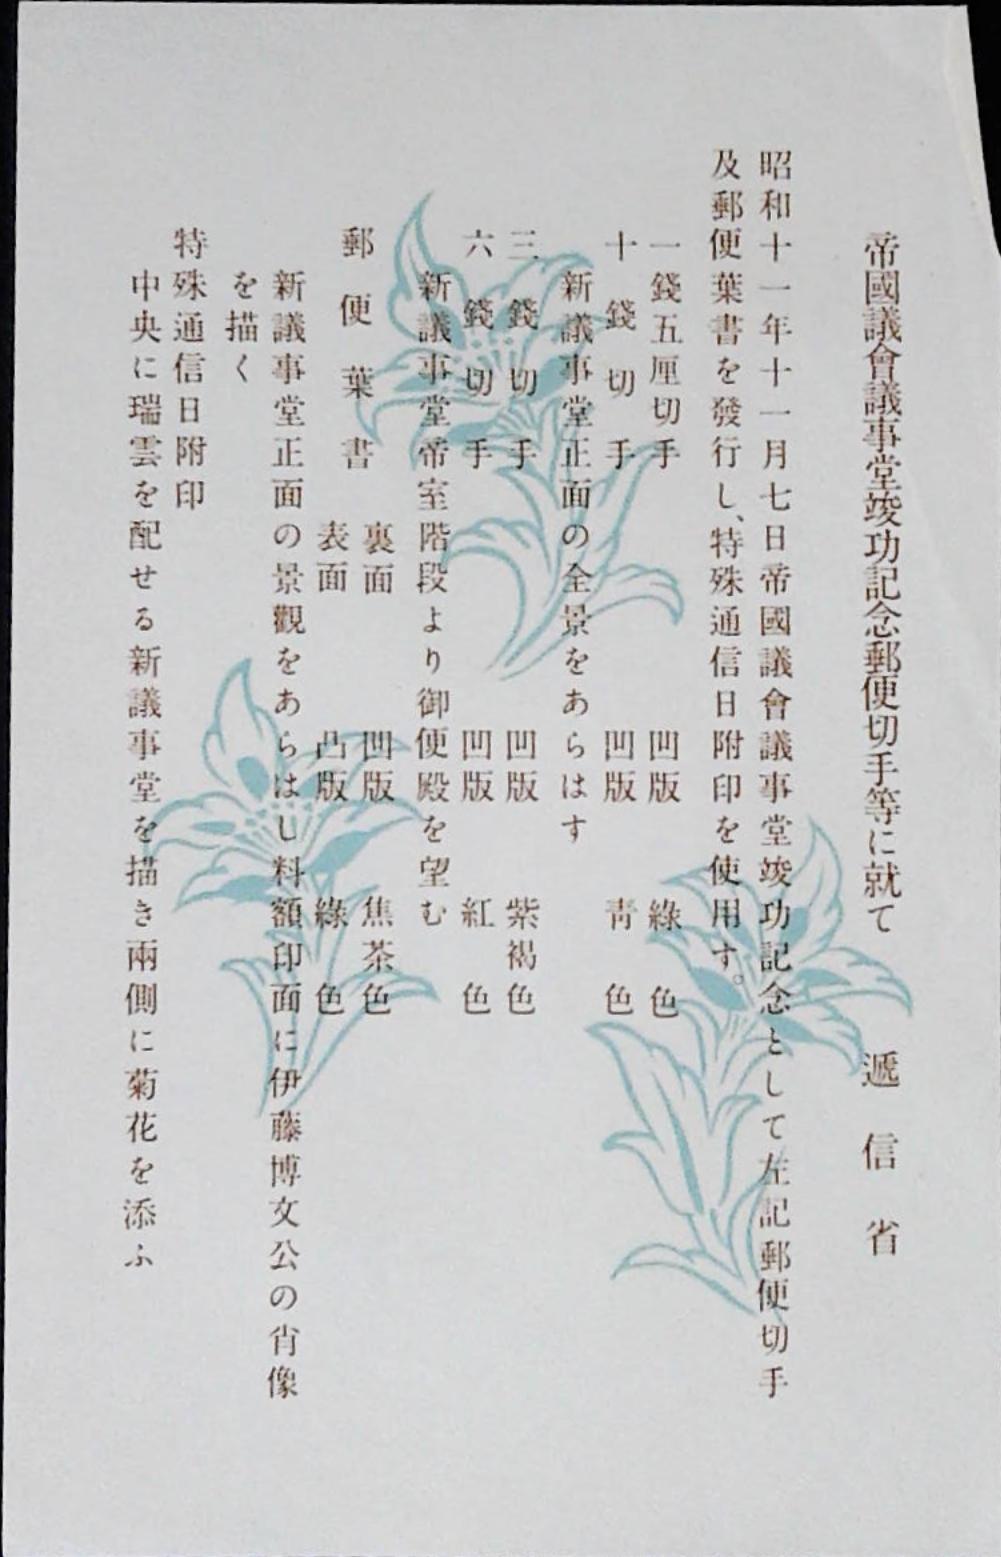 帝國議會議事堂竣功記念郵便切手等に就て 遞信省
昭和十一年十一月七日帝國議會議事堂竣功記念として左記郵便切手
及郵便葉書を發行し、特殊通信日附印を使用す。
一錢五厘切手 凹版 綠色
十錢切手 凹版 青色
新議事堂正面の全景をあらはす
三錢切手 凹版 紫褐色
六錢切手 凹版 紅色
新議事堂帝室階段より御便殿を望む
郵便葉書 裏面 凹版 焦茶色
表面 凸版 綠色
新議事堂正面の景觀をあらはし料額印面に伊藤博文公の肖像
を描く
特殊通信日附印
中央に瑞雲を配せる新議事堂を描き兩側に菊花を添ふ